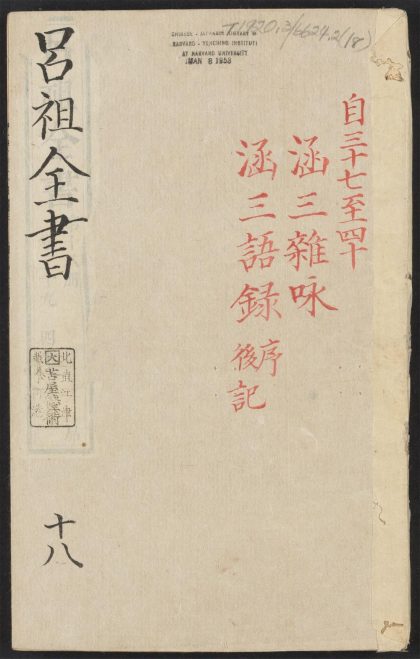 T1920.3/6624.2(18)
CHINESE - JAPANESE LIBRARY OF
HARVARD - YENCHING INSTITUTE
AT HARVARD UNIVERSITY
MAR 8 1953
自三十七至四十
涵三雜咏
涵三語録序後記
呂祖全書
十八